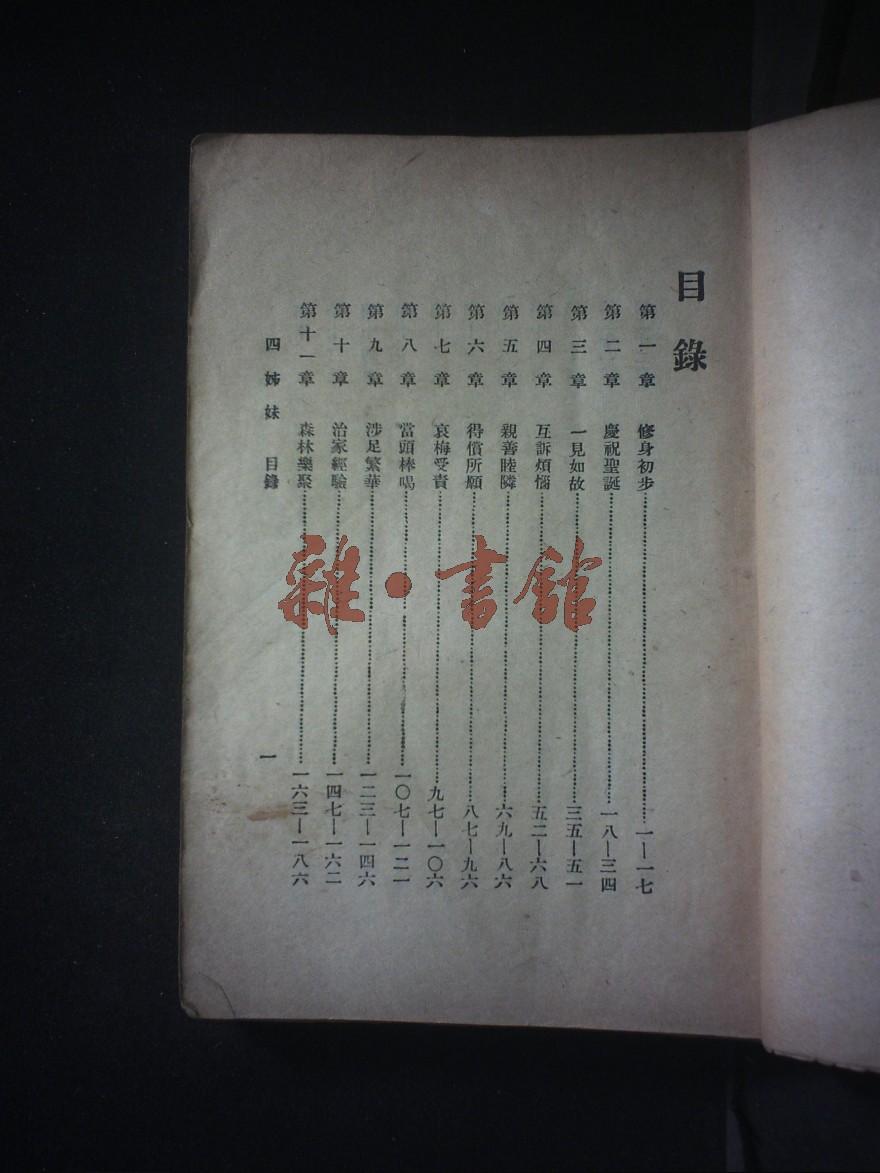 目錄
第一章 修身初步……一—一七
第二章 慶祝聖誕……一八—三四
第三章 一見如故……三五—五一
第四章 互訴煩惱……五二—六八
第五章 親善睦隣……六九—八六
第六章 得償所願……八七—九六
第七章 哀梅受責……九七—一〇六
第八章 當頭棒喝……一〇七—一二一
第九章 涉足繁華……一二三—一四六
第十章 治家經驗……一四七—一六二
第十一章 森林樂聚……一六三—一八六
四姊妹 目錄 一
雜·書館